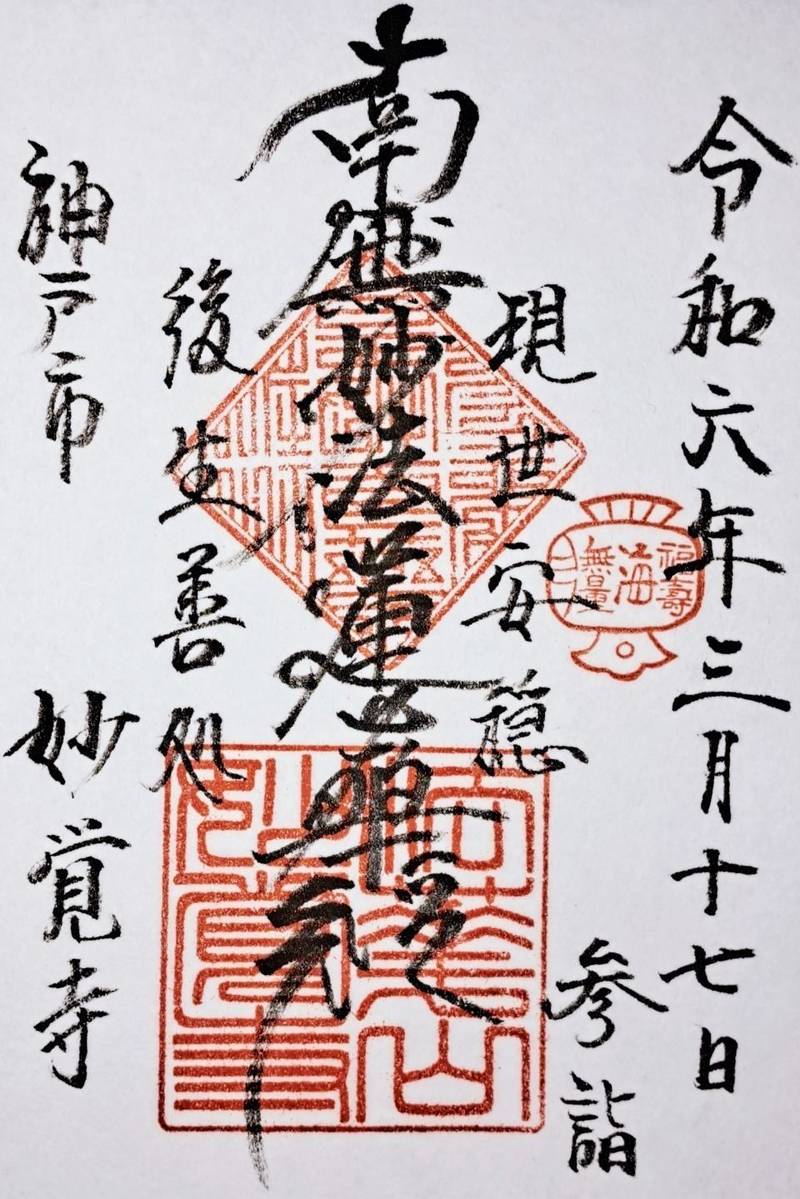 令和六年三月十七日
参詣
福壽
海
無量
現世安穏
南無妙法蓮華経
後生善処
神戸市
妙覚寺